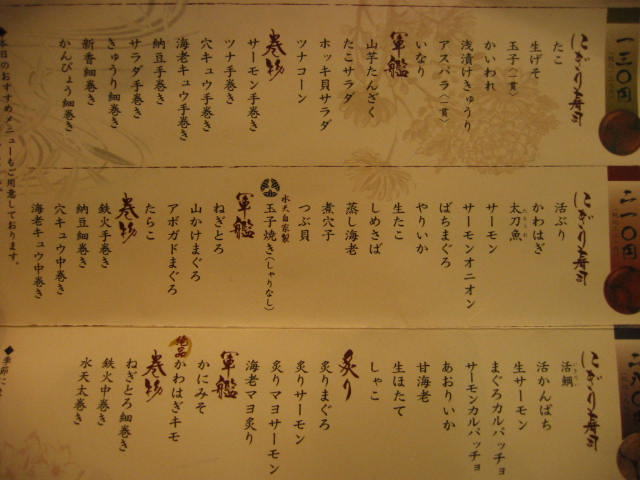 一三〇円
にぎり寿司
たこ
生げそ
玉子(一貫)
かいわれ
浅漬けきゅうり
アスパラ(一貫)
いなり
軍艦
山芋たんざく
たこサラダ
ホッキ貝サラダ
ツナコーン
巻物
サーモン手巻き
ツナ手巻き
穴キュウ手巻き
海老キュウ手巻き
納豆手巻き
サラダ手巻き
きゅうり細巻き
新香細巻き
かんぴょう細巻き
◆本日のおすすめメニューもご用意しております。
二一〇円
にぎり寿司
活ぶり
かわはぎ
太刀魚
サーモン
サーモンオニオン
ばちまぐろ
やりいか
生たこ
しめさば
蒸し海老
煮穴子
つぶ貝
水天自家製
玉子焼き(しゃりなし)
軍艦
ねぎとろ
山かけまぐろ
アボガドまぐろ
たらこ
巻物
鉄火手巻き
納豆細巻き
穴キュウ中巻き
海老キュウ中巻き
二八〇円
にぎり寿司
活鯛
活かんぱち
生サーモン
まぐろカルパッチョ
サーモンカルパッチョ
あおりいか
甘海老
生ほたて
しゃこ
炙り
炙りまぐろ
炙りサーモン
炙りマヨサーモン
海老マヨ炙り
軍艦
かにみそ
絶品
かわはぎキモ
巻物
ねぎとろ細巻き
鉄火中巻き
水天太巻き
◆季節に